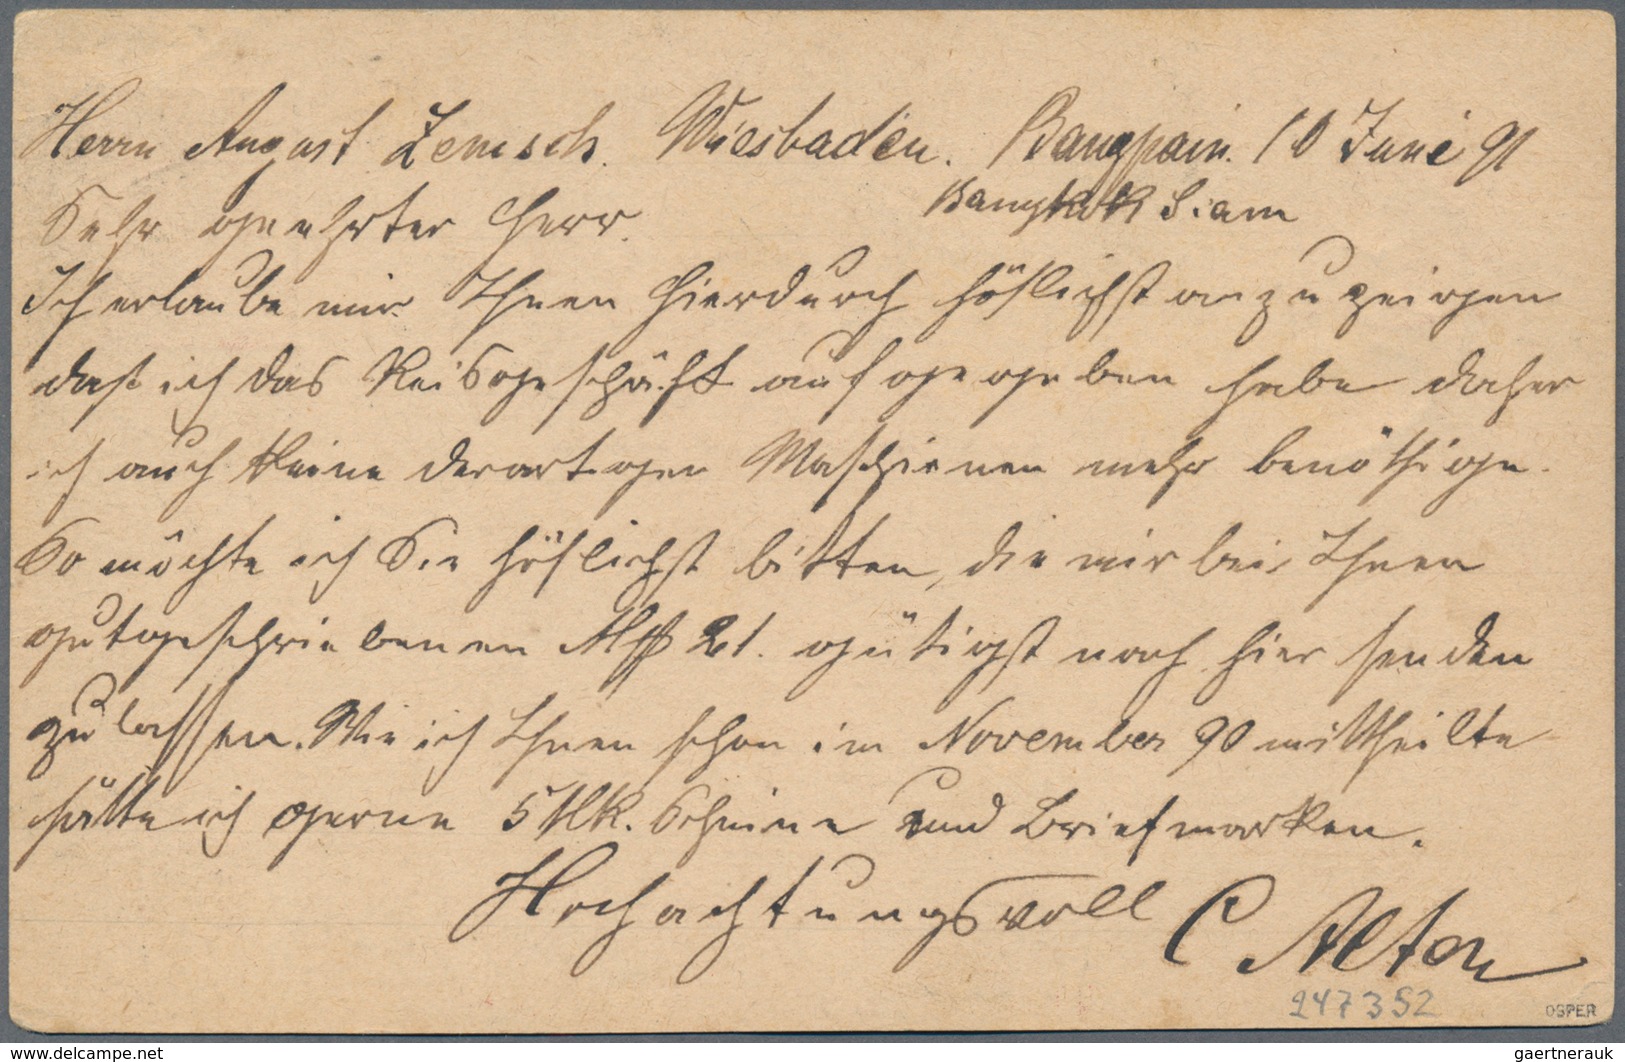 Herrn August Zemsch. Wiesbaden. Bangpain. 10 Juni 91
Bangkok Siam
Sehr geehrter Herr.
Ich erlaube mir Ihnen hierdurch höflichst anzuzeigen
daß ich das Reisgeschäft aufgegeben habe daher
ich auch keine derartigen Maschienen mehr benöthige.
So möchte ich Sie höflichst bitten, die mir bei Ihnen
gutgeschriebenen 21. gütigst nach hier senden
zu lassen. Wie ich Ihnen schon im November 90 mittheilte
hätte ich gerne 5 Mk. Scheine und Briefmarken.
Hochachtungsvoll C Alton
247352
OSPER
www.delcampe.net
gaertnerauk